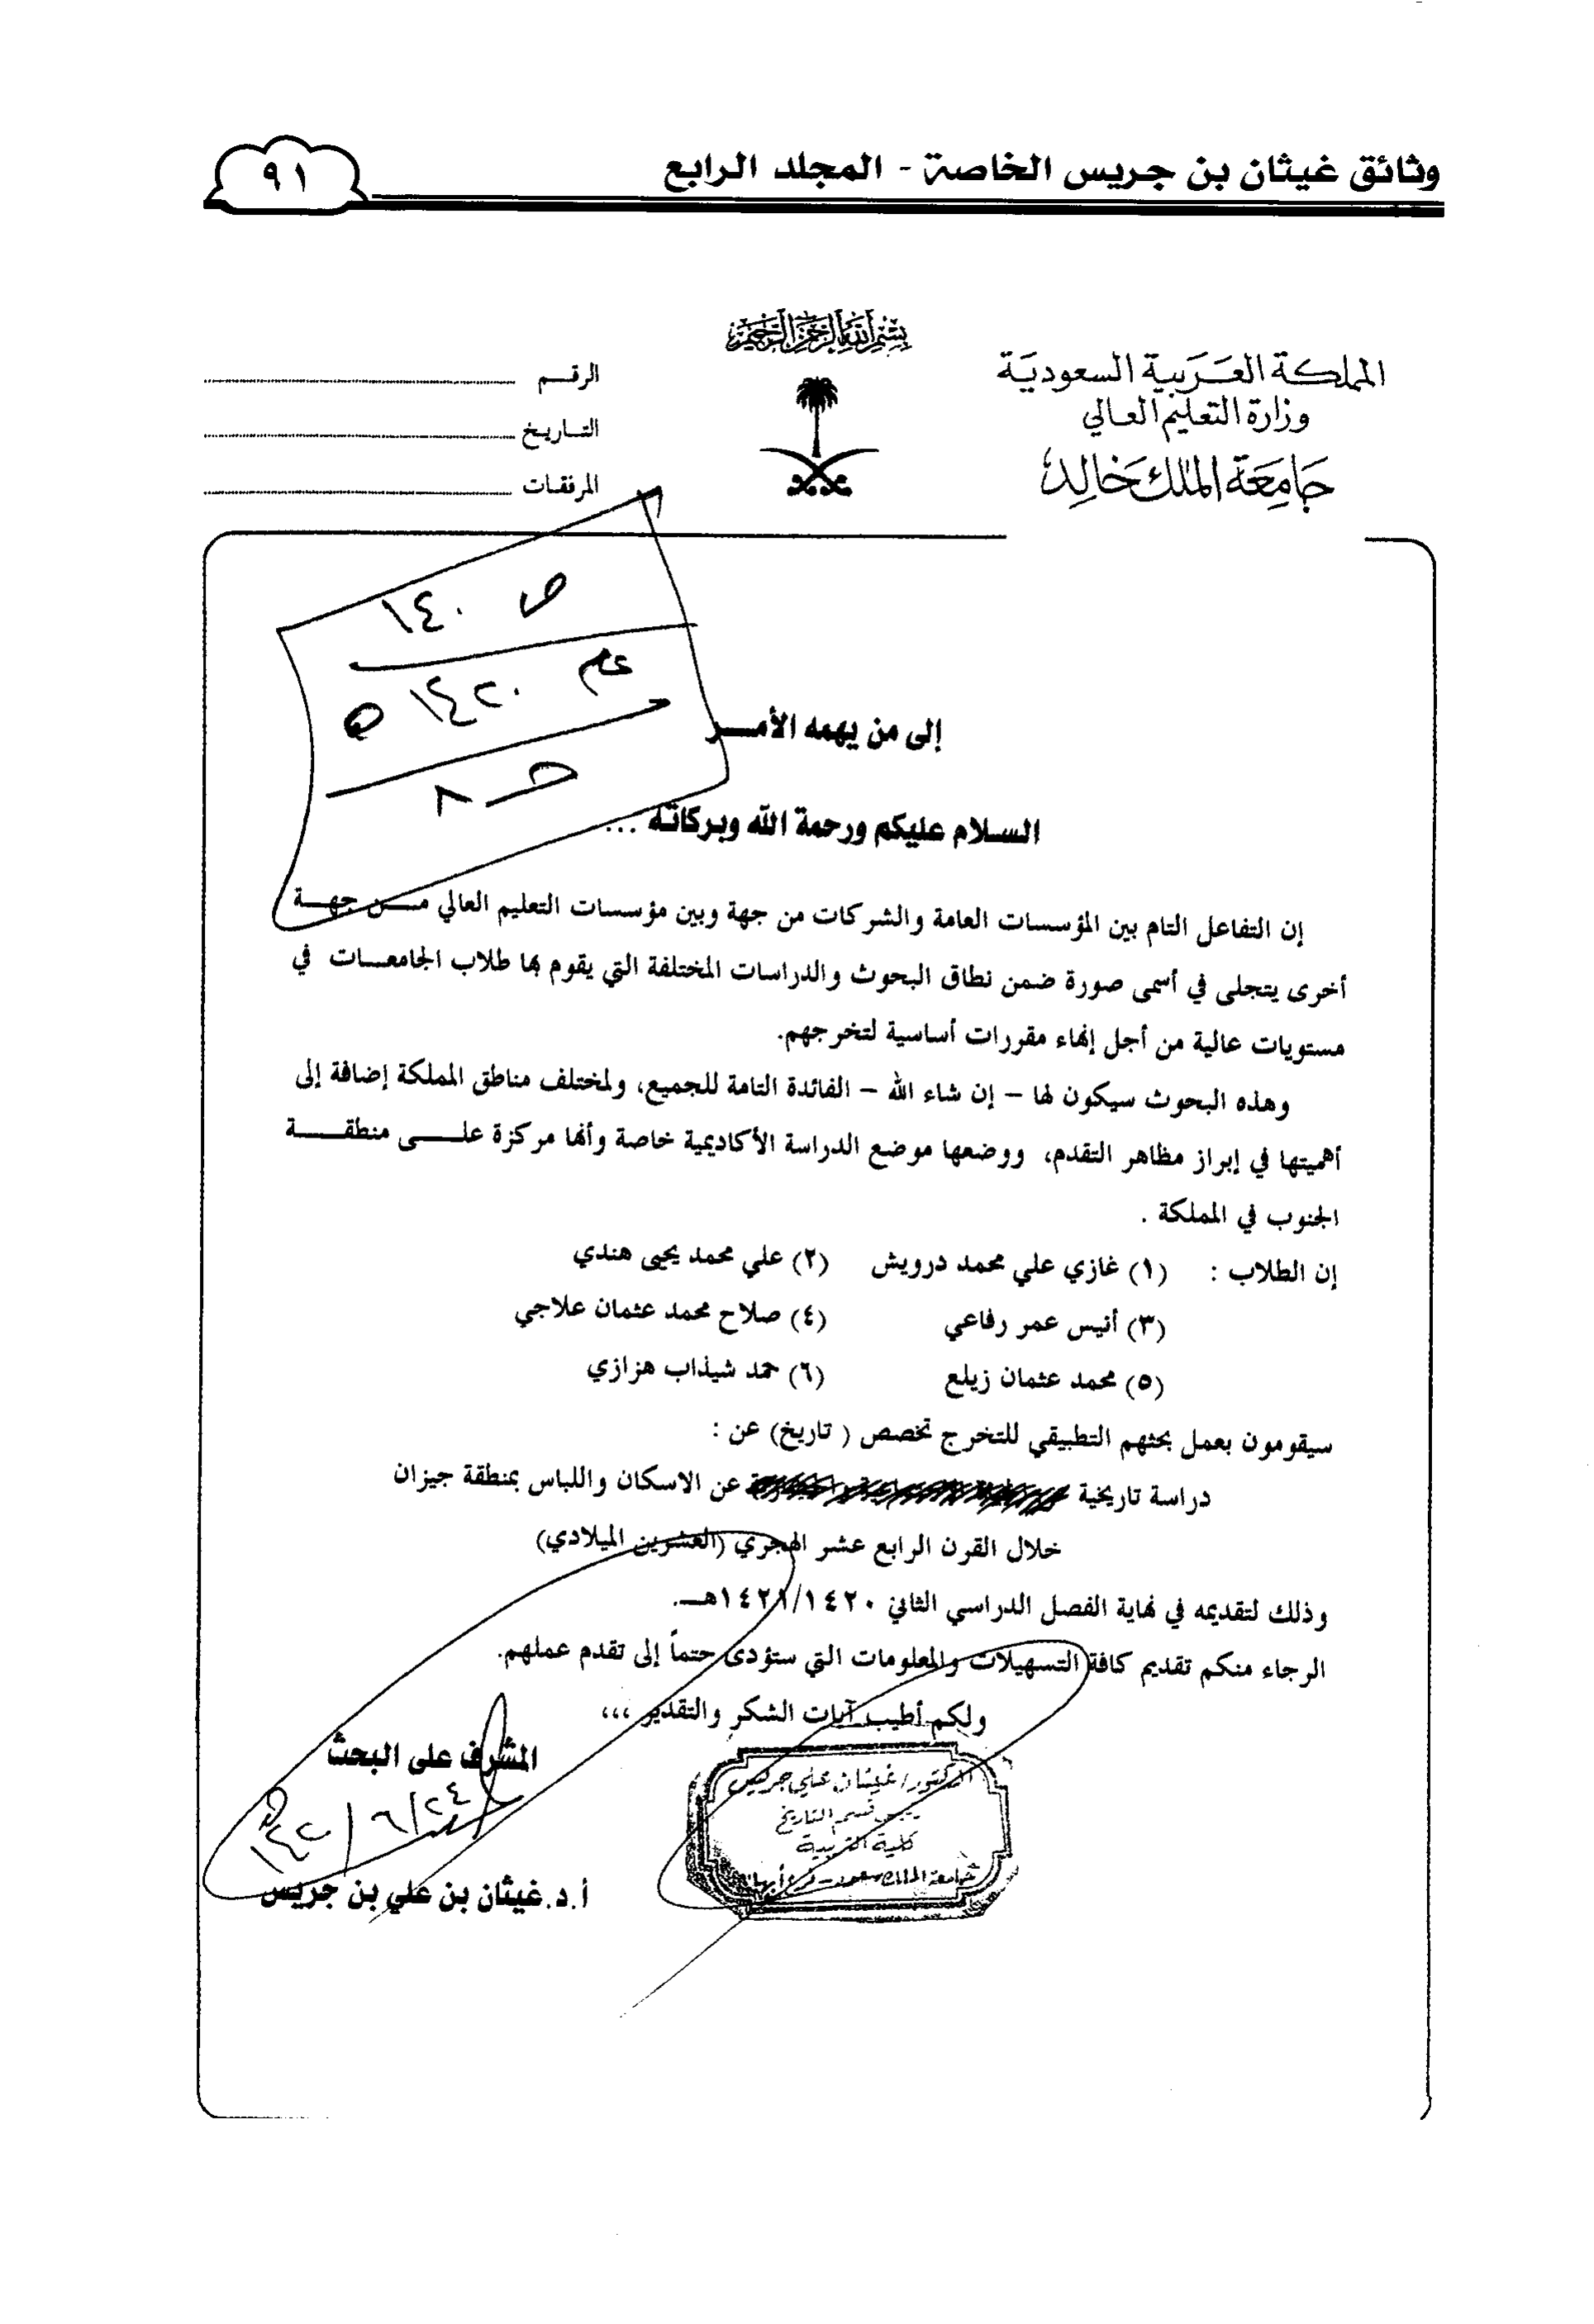 وثائق غيثان بن جريس الخاصة - المجلد الرابع
٩١
بسم الله الرحمن الرحيم
المملكة العربية السعودية
وزارة التعليم العالي
جامعة الملك خالد
الرقـــم
التـاريـخ
المرفقـات
ص ١٤٠
عام ١٤٢٠
إلى من يهمه الأمـــر
السـلام عليكم ورحمة الله وبـركاتـه ...
إن التفاعل التام بين المؤسسات العامة والشركات من جهة وبين مؤسسات التعليم العالي مـــن جهـــة
أخرى يتجلى في أسمى صورة ضمن نطاق البحوث والدراسات المختلفة التي يقوم بها طلاب الجامعــات في
مستويات عالية من أجل إنهاء مقررات أساسية لتخرجهم.
وهذه البحوث سيكون لها – إن شاء الله – الفائدة التامة للجميع، ولمختلف مناطق المملكة إضافة إلى
أهميتها في إبراز مظاهر التقدم، ووضعها موضع الدراسة الأكاديمية خاصة وأنها مركزة علـــى منطقـــة
الجنوب في المملكة .
إن الطلاب : (١) غازي علي محمد درويش (٢) علي محمد يحيى هندي
(٣) أنيس عمر رفاعي (٤) صلاح محمد عثمان علاجي
(٥) محمد عثمان زيلع (٦) حمد شيذاب هزازي
سيقومون بعمل بحثهم التطبيقي للتخرج تخصص ( تاريخ) عن :
دراسة تاريخية عن الاسكان واللباس بمنطقة جيزان
خلال القرن الرابع عشر الهجري (العشرين الميلادي)
وذلك لتقديمه في نهاية الفصل الدراسي الثاني ١٤٢١/١٤٢٠هـــ.
الرجاء منكم تقديم كافة التسهيلات والمعلومات التي ستؤدى حتماً إلى تقدم عملهم.
ولكم أطيب آيات الشكر والتقدير ،،،
المشرف على البحث
الدكتور/ غيثان علي جريس
رئيس قسم التاريخ
كلية التربية
جامعة الملك سعود - فرع أبها
أ.د.غيثان بن علي بن جريس